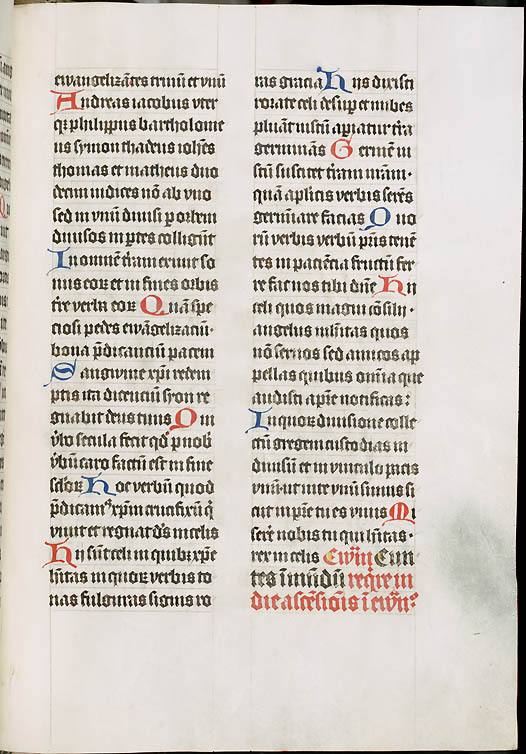 ewangelizātes trinū et vnū
Andreas iacobus vter
qꝫ philippus bartholome
us symon thadeus iohēs
thomas et matheus duo
decim iudices nō ab vno
sed in vnū diuisi p orbem
diuisos in ptes colligūt
In omnē t̄ram exiuit so
nus eoꝝ et in fines orbis
t̄re verba eoꝝ Quā spe
ciosi pedes ewāgelizaciū
bona p̄dicanciū pacem
Sanguine xp̄i redem
ptis ita dicenciū syon re
gnabit deus tuus Qui
v̄bo secula fecit qd̄ p nob̄
v̄bū caro factū est in fine
sc̄loꝝ Hoc verbū quod
p̄dicam⁹ xp̄m crucifixū q̄
viuit et regnat ds̄ in celis
Hii sūt celi in quibꝫ xp̄e
hītas in quoꝝ verbis to
nas fulguras signis ro
ras gracia Hiis dixisti
rorate celi desup et nubes
pluāt iustū apiatur t̄ra
germinās Germē iu
stū suscitet t̄ram n̄ram
quā aplicis verbis serēs
germīare facias Quo
rū verbis verbū pr̄is tenē
tes in paciēcia fructū fer
re fac nos tibi dn̄e Hii
celi quos magni cōsilii
angelus inhītas quos
nō seruos sed amicos ap
pellas quibus om̄ia que
audisti a pr̄e notificas
In quoꝝ diuisione colle
ctū gregem custodias in
diuisū et in vinculo pacis
vniū ut in te vnū simus si
cut in pr̄e tu es vnus Mi
serē nobis tu qui hītas
rex in celis Ewm̄ Eun
tes ī mūdū reqr̄e in
die ascēsiōis ī ewm̄